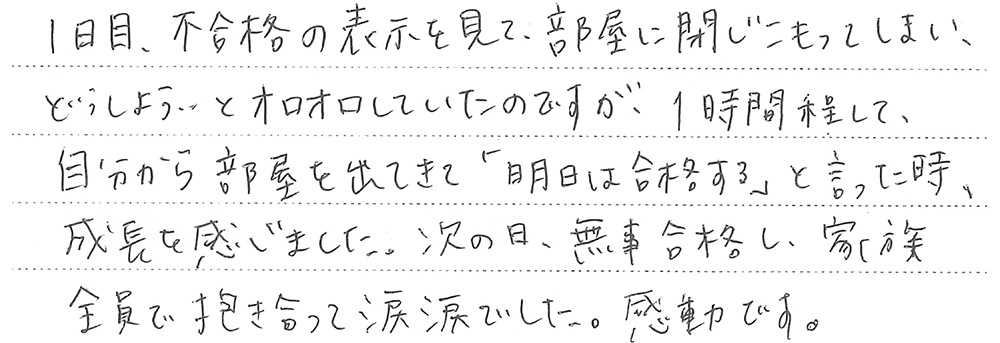 1日目、不合格の表示を見て、部屋に閉じこもってしまい、
どうしよう‥とオロオロしていたのですが、1時間程して、
自分から部屋を出てきて「明日は合格する」と言った時、
成長を感じました。次の日、無事合格し、家族
全員で抱き合って涙涙でした。感動です。